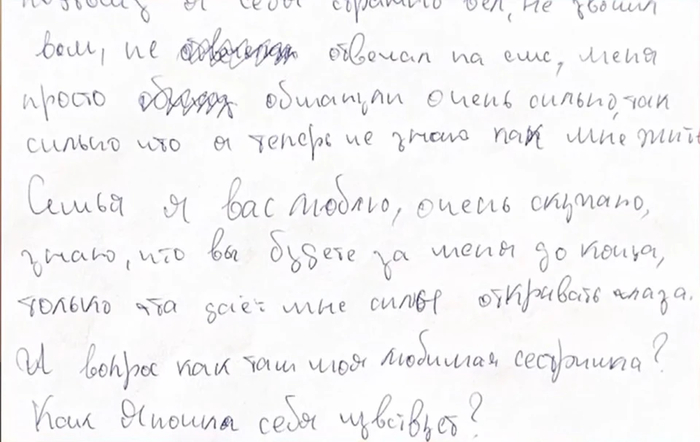 поэтому я себя странно вел, не звонил
вам, не отвечал на смс, меня
просто обманули очень сильно, так
сильно что я теперь не знаю как мне жить
Семья я вас люблю, очень скучаю,
знаю, что вы будете за меня до конца,
только эта даёт мне силы открывать глаза.
И вопрос как там моя любимая сестричка?
Как себя чувствует?